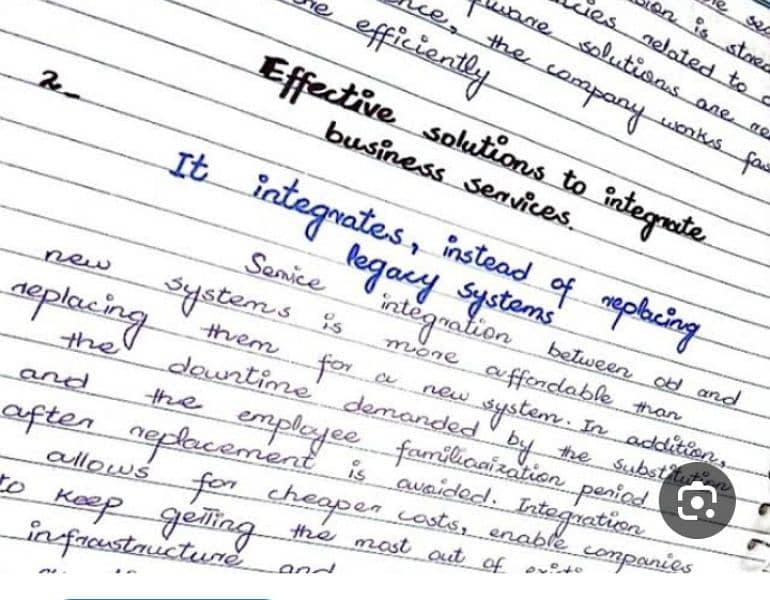 sion is stored
cies related to
ware solutions are
nce, the company works
efficiently
2- Effective solutions to integrate
business services.
It integrates, instead of replacing
legacy systems
Service integration between old and
new systems is more affordable than
replacing them for a new system. In addition,
the downtime demanded by the substitution
and the employee familiarization period
after replacement is avoided. Integration
allows for cheaper costs, enable companies
to keep getting the most out of
infraustructure and